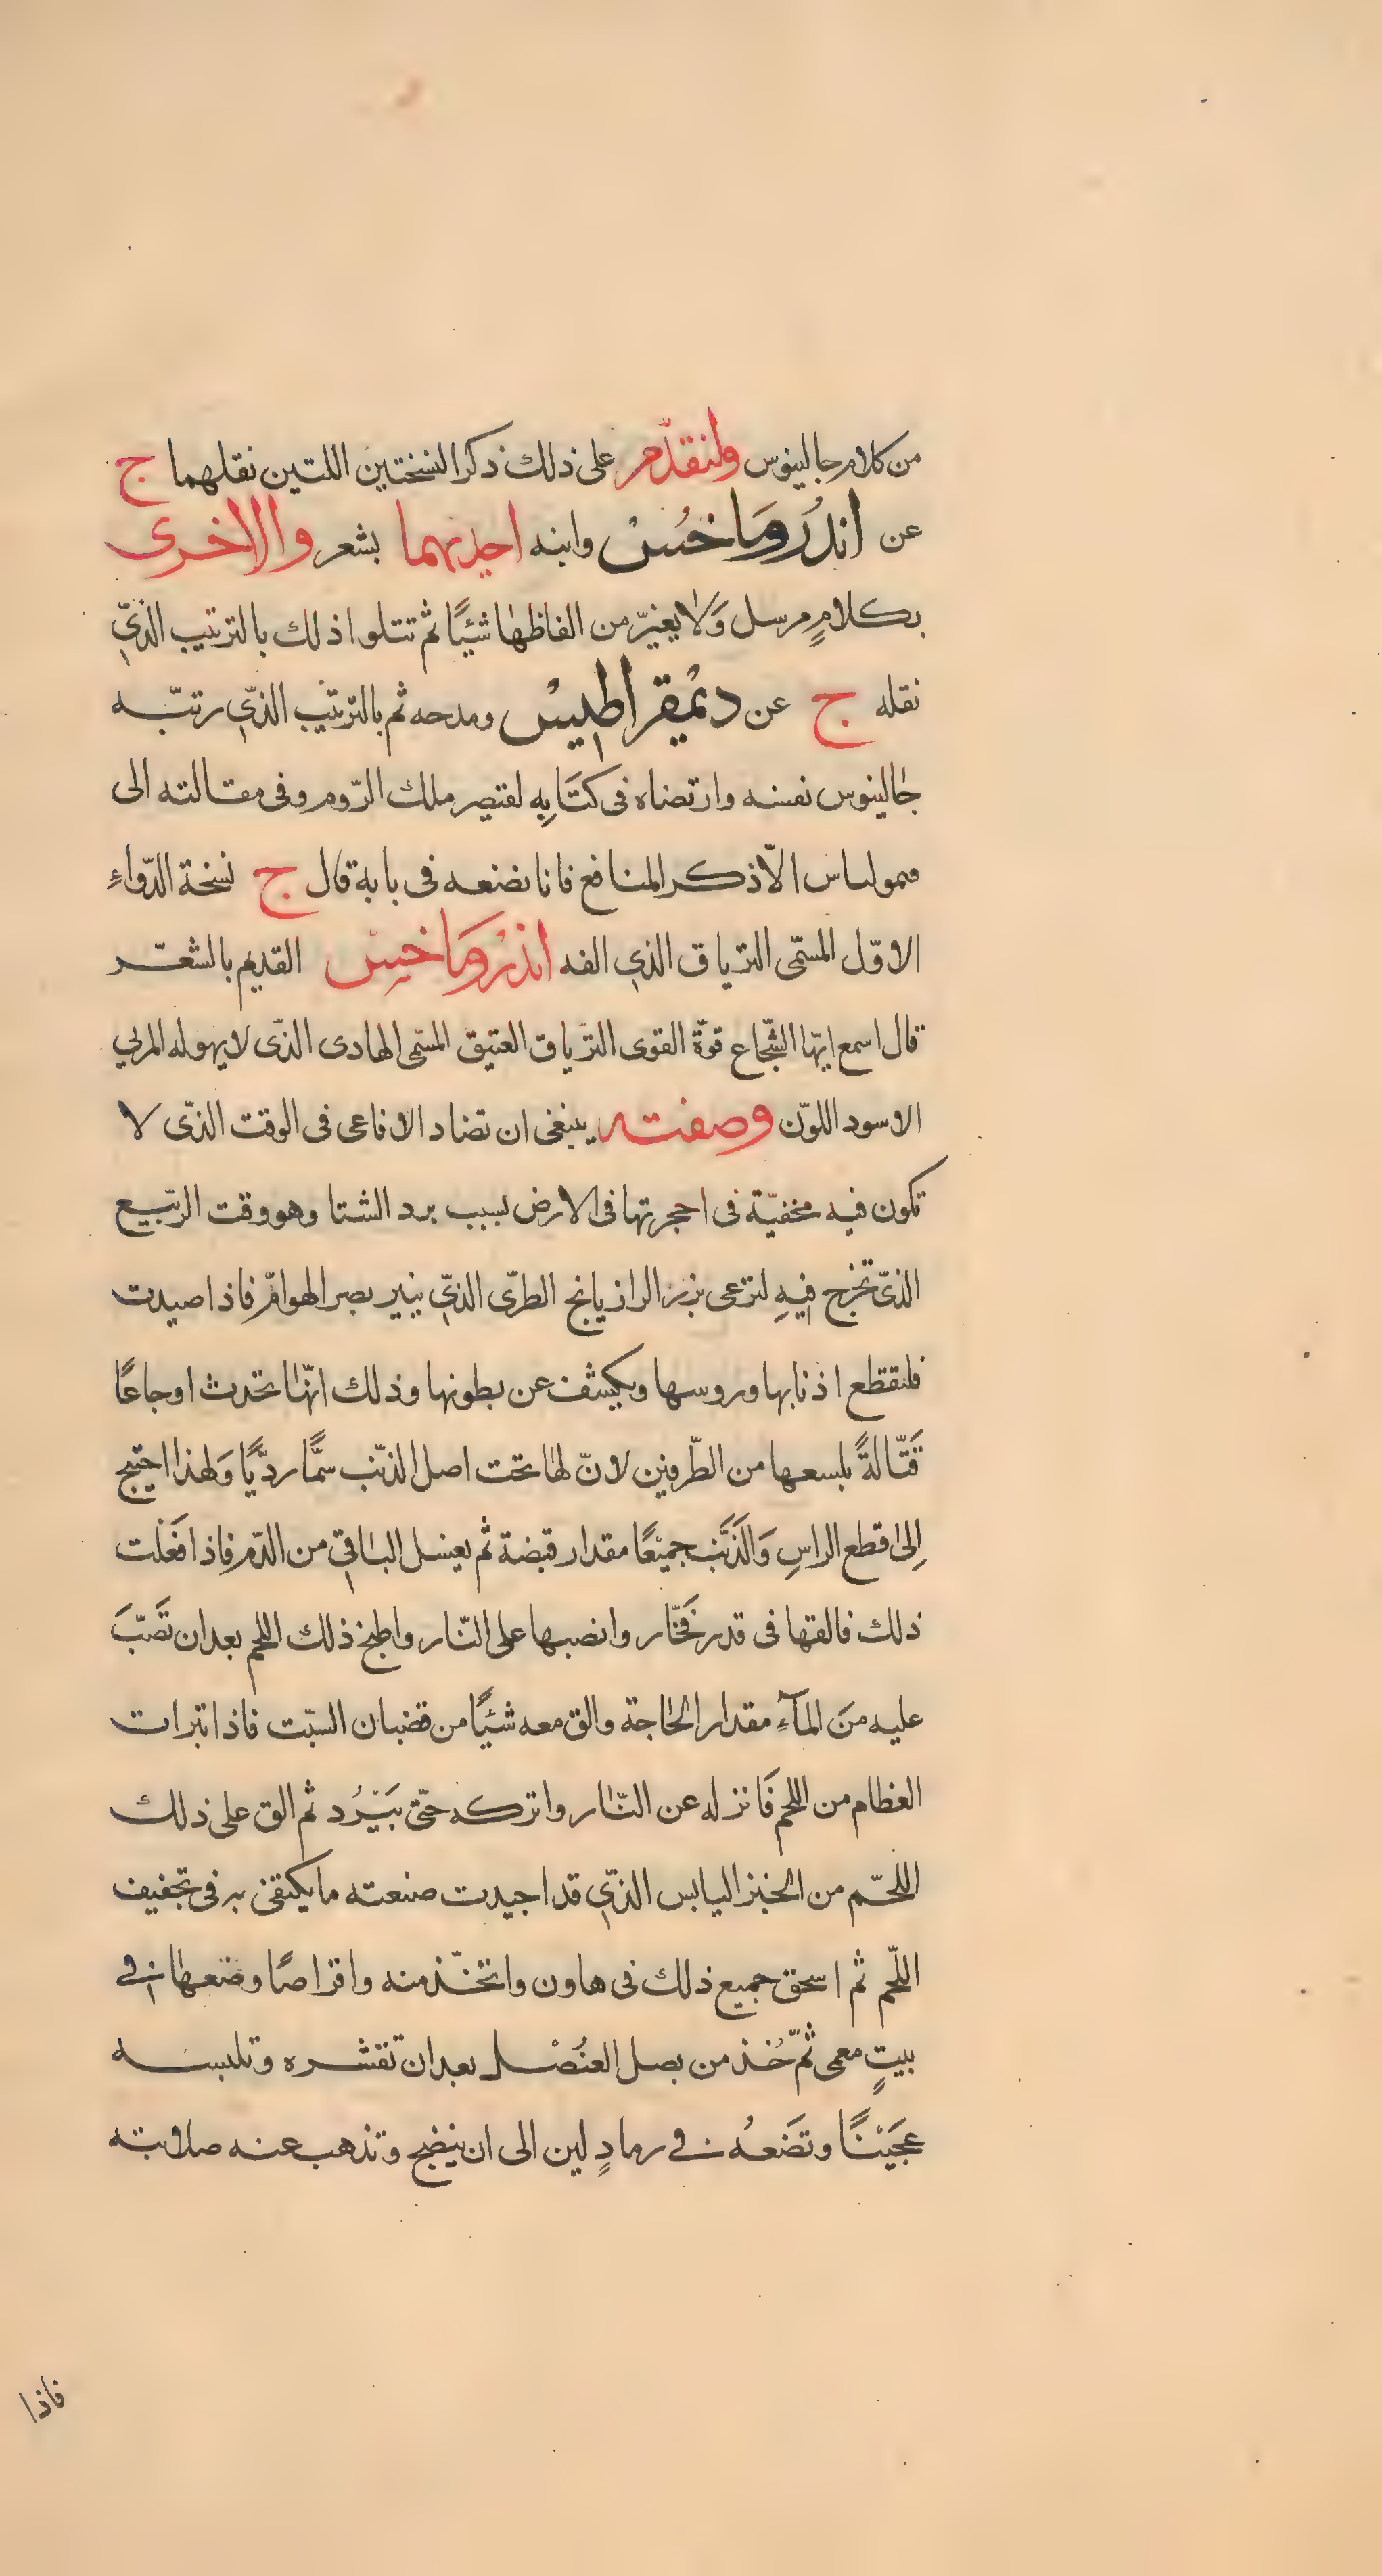 من كلام جالينوس ولنقدّم على ذلك ذكر النسختين اللتين نقلهما ج
عن اندُروَمَاخُسْ وابنه احديهما بشعر والاخرى
بكلامٍ مرسل وَلا يغيّر من الفاظها شئيًا ثم تتلوا ذلك بالترتيب الذيّ
نقله ج عن ديْمقراطيسْ ومدحه ثم بالترتيب الذيّ رتبّه
جالينوس نفسه وارتضاه فى كتَابِهِ لقيصر ملك الرّوم وفى مقالته الى
الاّ ذكر المنافع فانا نضعه فى بابة قال ج نسخة الدّواءِ
الاوّل المسمّى الترياق الذي الفه اندْروَمَاخسْ القديم بالشعّر
قال اسمع ايّها الشّجاع قوّة القوى الترّياق العتيق المسمّى الهادى الذّى لا يهوله المربي
الاسود اللوّن وصفته ينبغى ان تضاد الافاعى فى الوقت الذّى لا
تكون فيه مخفيّة فى احجرتها فى الارض بسبب برد الشتا وهو وقت الرّبيع
الذىّ تخرج فيهِ لترعى بزر الرازيانج الطرّى الذيّ ينير بصر الهوامّ فاذا صيدت
فلتقطع اذنابها وروسها ويكشف عن بطونها وذلك انّها تحدث اوجاعًا
قَتّالةً بلسعها من الطّرفين لانّ لها تحت اصل الذنّب سمًّا رديًّا وَلهذا احتيج
اِلى قطع الراسِ وَالذَنَب جميعًا مقدار قبضة ثم يغسل الباقي من الدّم فاذا فَعَلت
ذلك فالقها فى قدر فَخّار وانصبها على النّار واطبخ ذلك اللحم بعد ان تَصّبَ
عليه منَ المآءِ مقدار الحاجة والق معه شئيًا من قضبان السبّت فاذا تبرات
العظام من اللحم فَانزله عن النّار واتركه حتّى يَبْرُد ثم الق على ذلك
اللحّم من الخبز اليابس الذّي قد اجيدت صنعته ما يكتفى به فى تجفيف
اللّحم ثم اسحق جميع ذلك فى هاون واتخّذ منه واقراصًا وضعها فى
بيتٍ معمى ثمّ خُذ من بصل العنُصْل بعد ان تقشره وتلبسه
عجَيْنًا وتضَعُه فى رمادٍ لين الى ان ينضج وتذهب عنه صلابته
فاذا